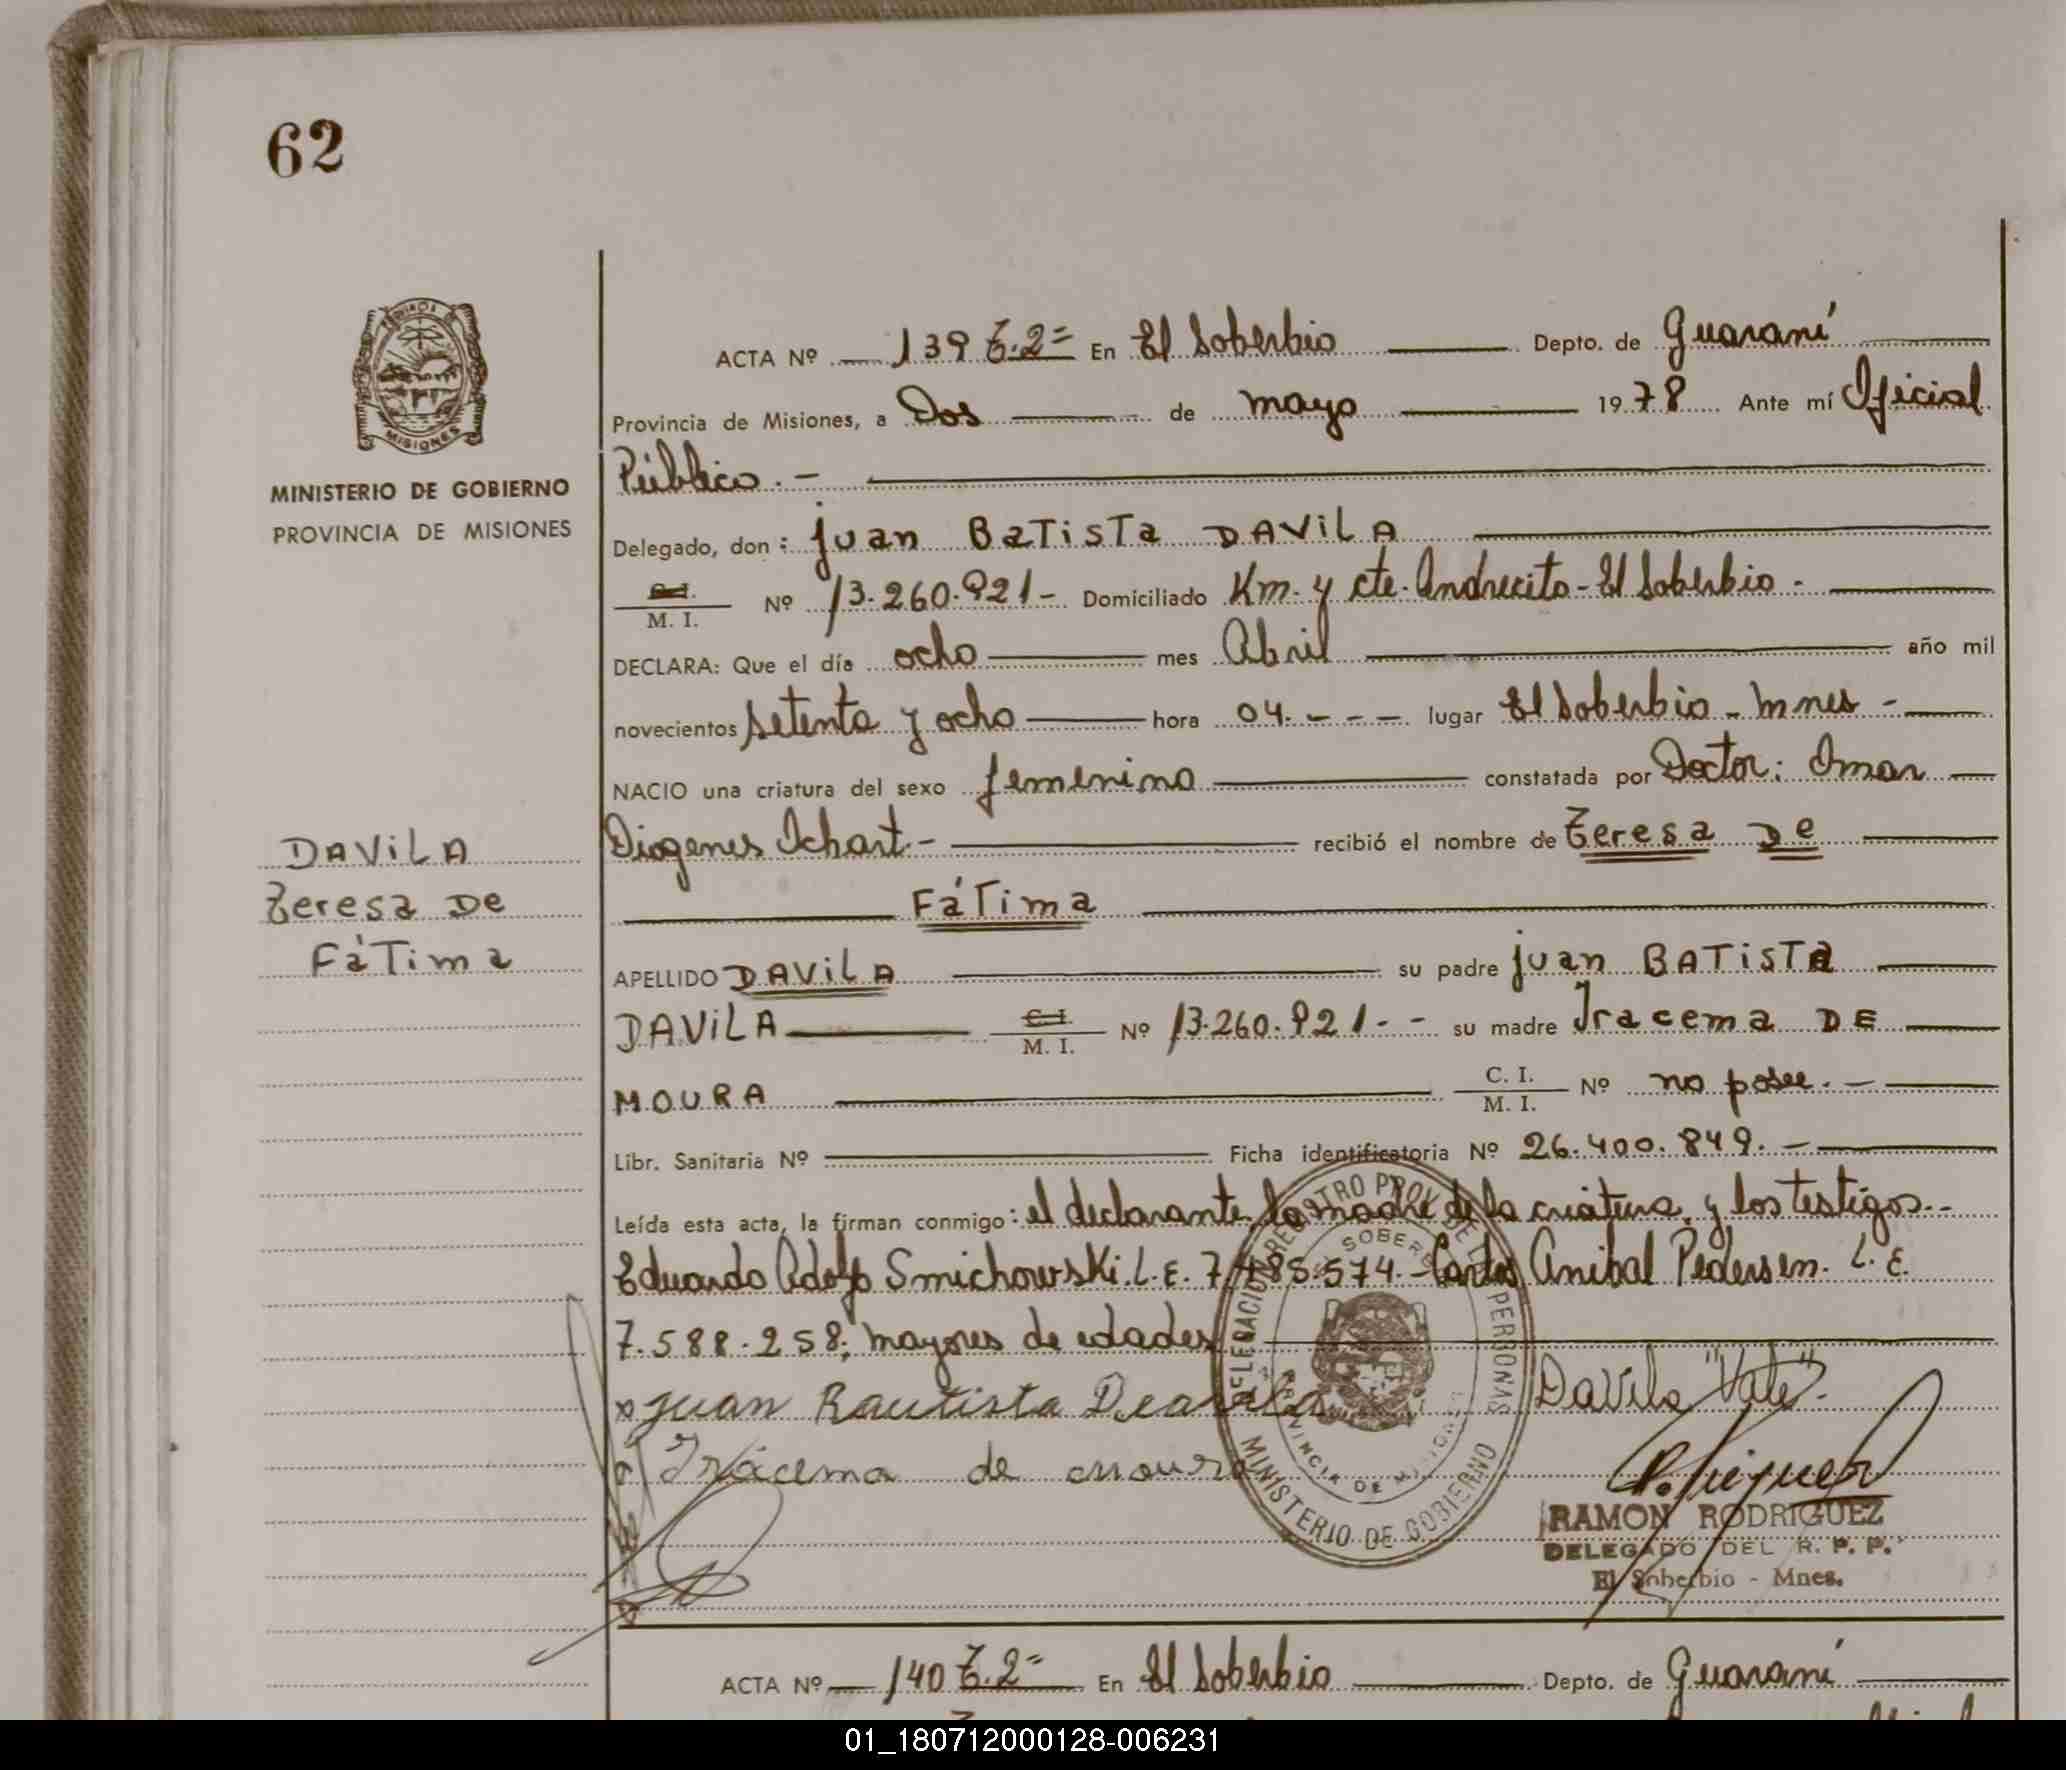 62
MISIONES
MINISTERIO DE GOBIERNO
PROVINCIA DE MISIONES
DAVILA
Teresa De
Fátima
ACTA Nº 139 T.2= En El Soberbio Depto. de Guaraní
Provincia de Misiones, a Dos de mayo 1978 Ante mí Oficial
Público.-
Delegado, don: Juan BaTisTa DAVILA
C.I. M. I. Nº 13.260.921- Domiciliado Km. y cte. Andrecito - El Soberbio -
DECLARA: Que el día ocho mes Abril año mil
novecientos setenta y ocho hora 04. - - - lugar El Soberbio - Mnes -
NACIO una criatura del sexo femenino constatada por Doctor: Omar
Diogenes Ichart.- recibió el nombre de Teresa De
FáTima
APELLIDO DAVILA su padre Juan BATisTa
DAVILA C.I. M. I. Nº 13.260.921. - - su madre Iracema DE
MOURA C. I. M. I. Nº no posee. -
Libr. Sanitaria Nº Ficha identificatoria Nº 26.400.849. -
Leída esta acta, la firman conmigo: el declarante, la madre de la criatura, y los testigos..
Eduardo Adolfo Smichowski. L.E. 7.485.574.- Carlos Anibal Pedersen. L.E.
7.588.258; mayores de edades
x Juan Bautista Deavila Davila "Vale".
Irácema de moura
DELEGACION REGISTRO PROV. DE L PERSONAS
EL SOBERBIO
PROVINCIA DE MISIONES
MINISTERIO DE GOBIERNO
RAMON RODRIGUEZ
DELEGADO DEL R. P. P.
El Soberbio - Mnes.
ACTA Nº 140 T.2= En El Soberbio Depto. de Guaraní
01_180712000128-006231